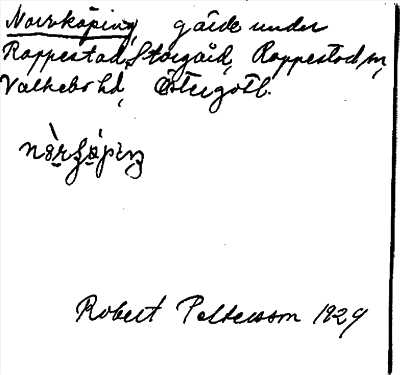 Norrköping, gärde under
Rappestad Storgård, Rappestad sn,
Valkebo hd, Östergötl.
Robert Pettersson 1929